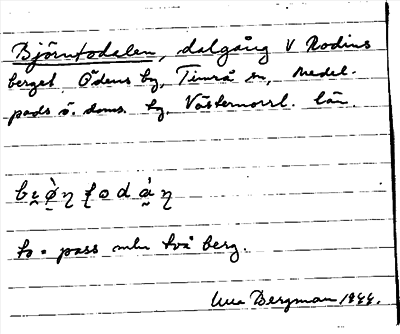 Björntodalen, dalgång V Rodins
berget Ödens by, Timrå sn, Medel-
pads ö. doms. by. Västernorrl. län.
to = pass mln två berg.
Bergman 1944.